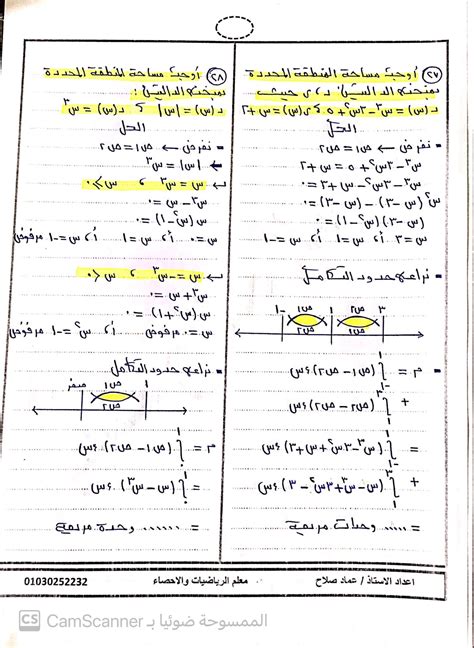 ٢٧ أوجد مساحة المنطقة المحددة
بمنحنى الدالتين د، ر حيث
د(س) = س٣ - ٣س٢ + ٥ ، ر(س) = س + ٢
الحل
نفرض ← ص١ = ص٢
س٣ - ٣س٢ + ٥ = س + ٢
س٣ - ٣س٢ - س + ٣ = ٠
س٢(س - ٣) - (س - ٣) = ٠
(س - ٣)(س٢ - ١) = ٠
س = ٣ أ، س = ١ أ، س = -١
نراعى حدود التكامل
-١ ١ ٣
ص١ ص٢
ص٢ ص١
م = ∫ (ص١ - ص٢) ءس
+ ∫ (ص٢ - ص١) ءس
= ∫ (س٣ - ٣س٢ - س + ٣) ءس
= ..... وحدات مربعة
٢٨ أوجد مساحة المنطقة المحددة
بمنحنى الدالتين :
د(س) = |س| ، ر(س) = س٣
الحل
نفرض ← ص١ = ص٢
|س| = س٣
س = س٣ ، س ≥ ٠
س٣ - س = ٠
س(س٢ - ١) = ٠
س = ٠ أ، س = ١ أ، س = -١ مرفوض
س = -س٣ ، س < ٠
س٣ + س = ٠
س(س٢ + ١) = ٠
س = ٠ مرفوض أ، س٢ = -١ مرفوض
نراعى حدود التكامل
صفر ١
ص١
ص٢
م = ∫ (ص١ - ص٢) ءس
= ∫ (س - س٣) ءس
= ...... وحدة مربعة
اعداد الاستاذ / عماد صلاح معلم الرياضيات والاحصاء 01030252232
CS CamScanner الممسوحة ضوئيا بـ